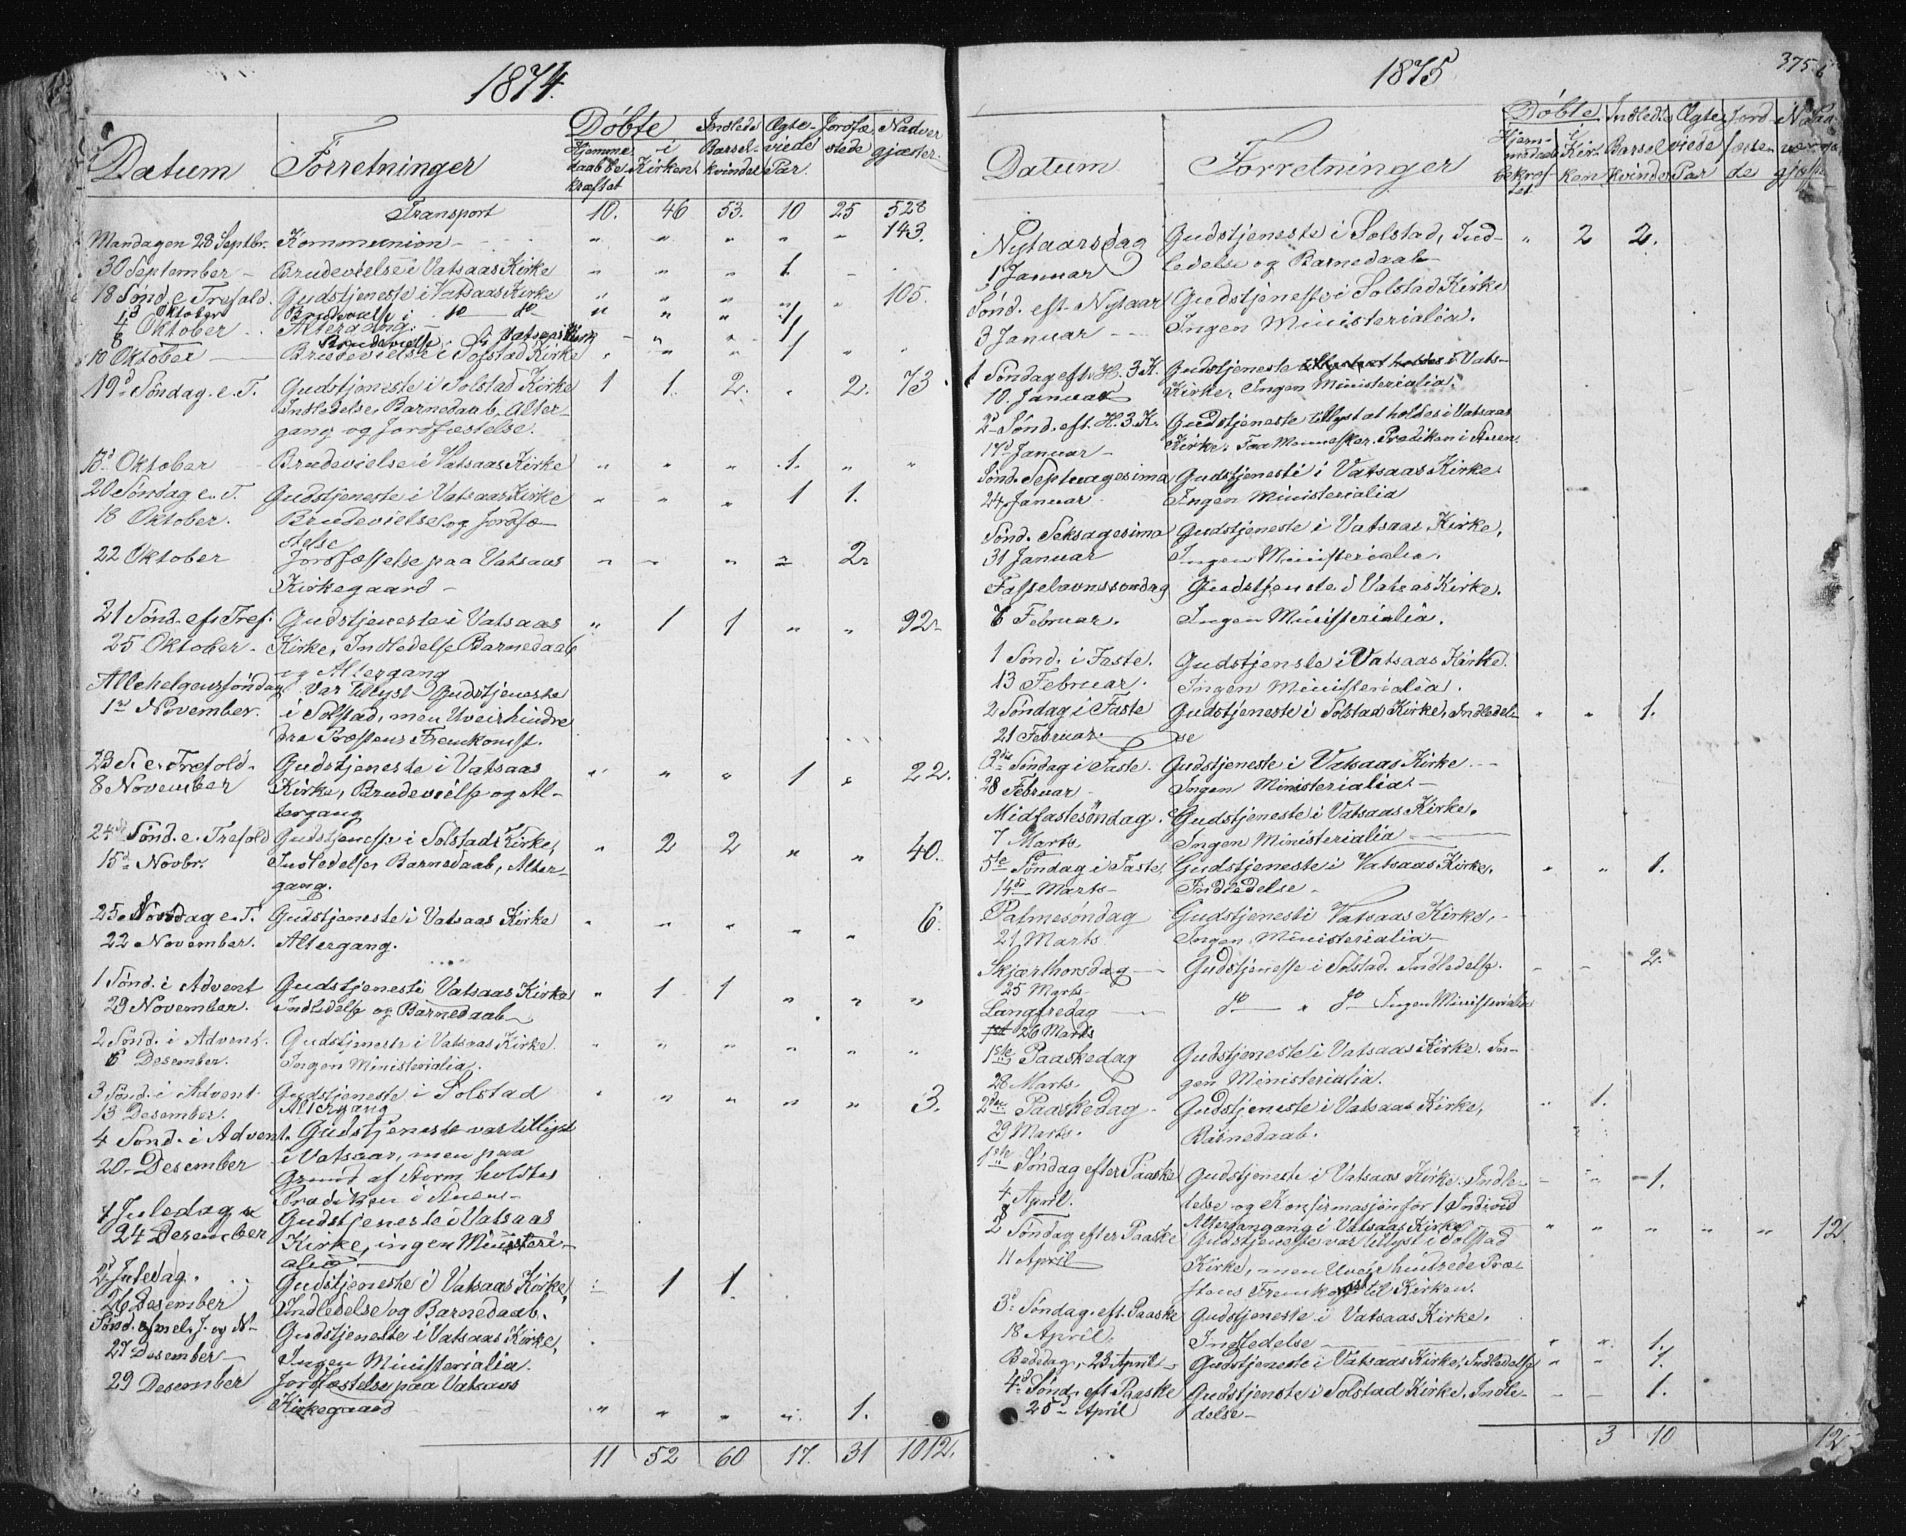 1874.
Datum Forretninger
Døbte
Hjemme-
daab be-
kræftet
i
Kirken
Indlede
Barsel-
kvinder
Ægte-
viede
Par.
Jordfæ
stede
Nadver
gjæster
Transport 10. 46 53. 10 25 528
Mandagen 28 Septbr. Kommunion - " " " " " 143.
30 September - Brudevielse i Vatsaas Kirke " " " 1.
18 Sønd. e. Trefold. Gudstjeneste i Vatsaas Kirke " " " " 105.
Oktober Brudevielse i do do " " " 1
4 Oktober Altergang.
8 Brudevielse 1
10 Oktober Brudevielse i Solstad Kirke " " " 1 " "
19d Søndag. e. T. Gudstjeneste i Solstad Kirke 1 1. 2. " 2. 73.
Indledelse, Barnedaab, Alter-
gang og Jordfæstelse.
13d Oktober Brudevielse i Vatsaas Kirke " " " 1. " "
20 Søndag e. T. Gudstjeneste i Vatsaas Kirke " " " 1 1.
18 Oktober. Brudevielse og Jordfæ-
stelse
22 Oktober Jordfæstelse paa Vatsaas " " " " 2.
Kirkegaard -
21 Sønd. eft. Tref. Gudstjeneste i Vatsaas " 1 1 " " 92.
25 Oktober. Kirke, Indledelse Barnedaab
og Altergang
Allehelgensøndag Var tillyst Gudstjeneste
1ste November. i Solstad, men Uveir hindre
dra Præstens Fremkomst.
23 S. e. Trefold. Gudstjeneste i Vatsaas " " " 1 " 22.
8 November Kirke, Brudevielse og Al-
tergang
24de Sønd. e. Trefold Gudstjeneste i Solstads Kirke, " 2 2 " " 40.
15d Novbr. Indledelse, Barnedaab, Alter-
gang.
25 Søndag e. T. Gudstjeneste i Vatsaas Kirke " " " " " 6.
22 November. Altergang.
1 Sønd. i Advent Gudstjeneste i Vatsaas Kirke " 1 1 " " "
29 November. Indledelse og Barnedaab
2 Sønd. i Advent. Gudstjeneste i Vatsaas Kirke. " " " " " "
6 Desember. Ingen Ministerialia.
3 Sønd. i Advent. Gudstjeneste i Solstad " " " " " 3.
13 Desember. Altergang
4 Sønd. i Advent. Gudstjeneste var tillyst
i Vatsaas, men paa
20 Desember Grund af Storm holdtes
Prædiken i Stuen -
1 Juledag Gudstjeneste i Vatsaas
24 Desember Kirke, ingen Ministeri-
alia.
2d Juledag. Gudstjeneste i Vatsaas Kirke, " 1 1.
26 Desember Indledelse og Barnedaab.
Sønd. mel. J. og N- Gudstjeneste i Vatsaas Kirke,
27 Desember Ingen Ministerialia.
29 Desember Jordfæstelse paa Vatsaas
Kirkegaard " " " " 1.
11 52 60 17. 31 1012.
1875
375
Datum Forretninger
Døbte
Hjem-
medaab
bekræf-
tet
i
Kir-
ken
Indlede
Barsel
kvinder
Ægte
viede
Par
Jord
fæste-
de
Nadver
gjæster
Nytaarsdag Gudstjeneste i Solstad, Ind- " 2 2.
1 Januar ledelse og Barnedaab
Sønd. eft. Nytaar Gudstjeneste i Solstad Kirke
3 Januar Ingen Ministerialia.
1 Søndag eft. H. 3 K. Gudstjeneste tillyst at holdes i Vats-
10. Januar Kirke, Ingen Ministerialia.
2d Sønd. eft. H. 3. K. Gudstjeneste tillyst at holdes i Vatsaas
17d Januar - Kirke. Faa Mennesker. Prædiken i Stuen.
Sønd. Septuagesima Gudstjeneste i Vatsaas Kirke.
24 Januar Ingen Ministerialia
Sønd. Seksagesima Gudstjeneste i Vatsaas Kirke,
31 Januar Ingen Ministerialia.
Fastelavnssøndag Gudstjeneste i Vatsaas Kirke.
7 Februar. Ingen Ministerialia.
1 Sønd. i Faste. Gudstjenste i Vatsaas Kirke.
13 Februar. Ingen Ministerialia.
2 Søndag i Faste Gudstjeneste i Solstad Kirke, Indledel- " " 1.
21 Februar. se
3die Søndag i Faste. Gudstjeneste i Vatsaas Kirke. -
28 Februar Ingen Ministerialia. -
Midfastesøndag. Gudstjeneste i Vatsaas Kirke.
7 Marts Ingen Ministerialia
5te Søndag i Faste, Gudstjeneste i Vatsaas Kirke. " " 1.
14de Marts Indledelse -
Palmesøndag Gudstjenest i Vatsaas Kirke, -
21 Marts Ingen Ministerialia -
Skjærthorsdag - Gudstjeneste i Solstad. Indledelse. - - 2.
25 Marts
Langfredag do " do Ingen Ministerialia
26 Marts
1ste Paaskedag Gudstjeneste i Vatsaas Kirke. In-
28 Marts. gen Ministerialia.
2den Paaskedag Gudstjeneste i Vatsaas Kirke, " 1.
29 Marts. Barnedaab.
1ste Søndag efter Paaske Gudstjeneste i Vatsaas Kirke. Indle- - " 1.
4 April. delse og Konfirmasjon for 1 Individ
Altergangang i Vatsaas Kirke " " " " " 12.
2 Søndag efter Paaske Gudstjeneste var tillyst i Solstad
11 April Kirke, men Uveir hindrede Præ-
stens Fremkomst til Kirken.
3d Søndag. eft. Paaske Gudstjeneste i Vatsaas Kirke.
18 April. Indledelse " " 1.
Bededag, 23 April Gudstjeneste i Vatsaas Kirke, Indledelse " " 1.
4d Sønd. eft Paaske Gudstjeneste i Solstad Kirke. Indle- - - 1.
25 April delse -
3 10 12